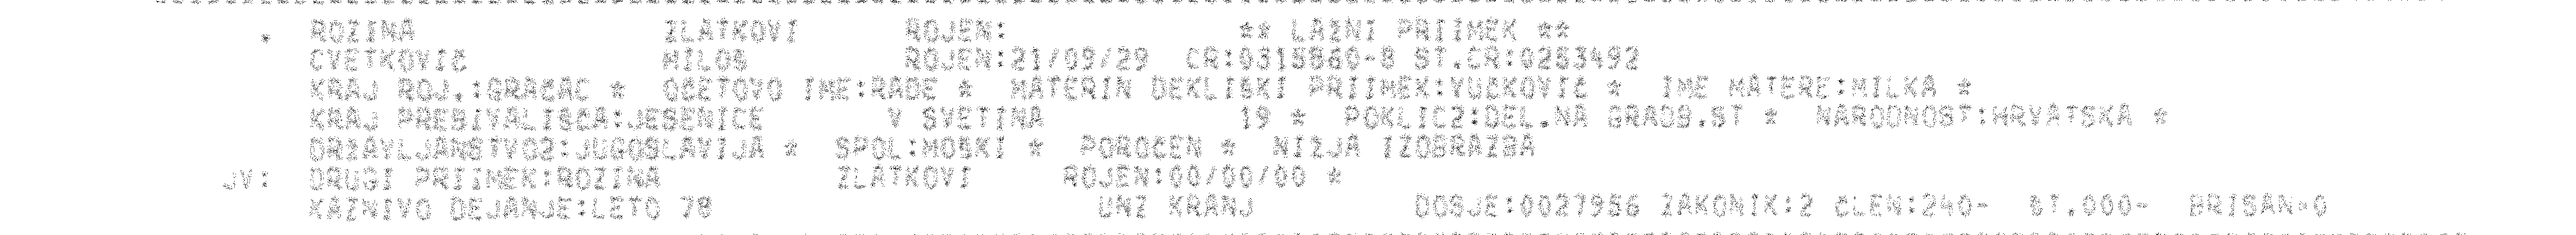 . ROZINA ZLATKOVI ROJEN: ** LAZNI PRIIMEK **
CVETKOVIČ MILOS ROJEN:21/09/29 CR:0315860-8 ST.CR:0253492
KRAJ ROJ.:GRAČAC * OČETOVO IME:RADE * MATERIN DEKLIŠKI PRIIMEK:VUČKOVIČ * IME MATERE:MILKA *
KRAJ PREBIVALIŠČA:JESENICE V SVETINA 19 * POKLIC2:DEL.NA GRADB.ST * NARODNOST:HRVATSKA *
DRŽAVLJANSTVO2:JUGOSLAVIJA * SPOL:MOŠKI * POROČEN * NIŽJA IZOBRAZBA
JV: DRUGI PRIIMEK:ROZINA ZLATKOVI ROJEN:00/00/00 *
KAZNIVO DEJANJE:LETO 78 UNZ KRANJ DOSJE:0027956 ZAKONIK:2 ČLEN:240- ST.000- BRISAN=0